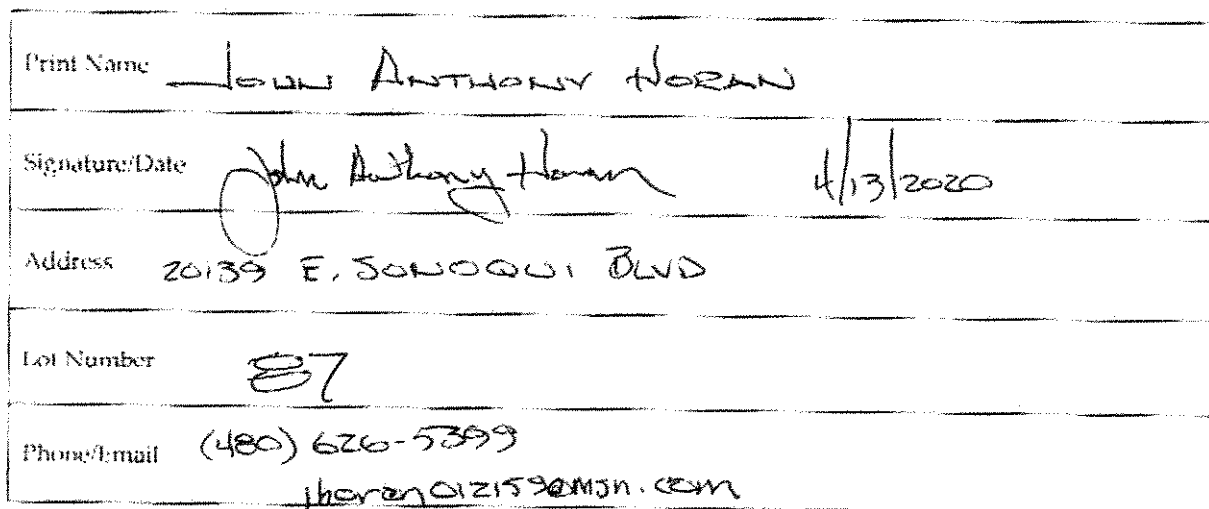 Print Name JOHN ANTHONY HORAN
Signature/Date John Anthony Horan 4/13/2020
Address 20139 E. SONOQUI BLVD
Lot Number 87
Phone/Email (480) 626-5399
jhoran012159@msn.com